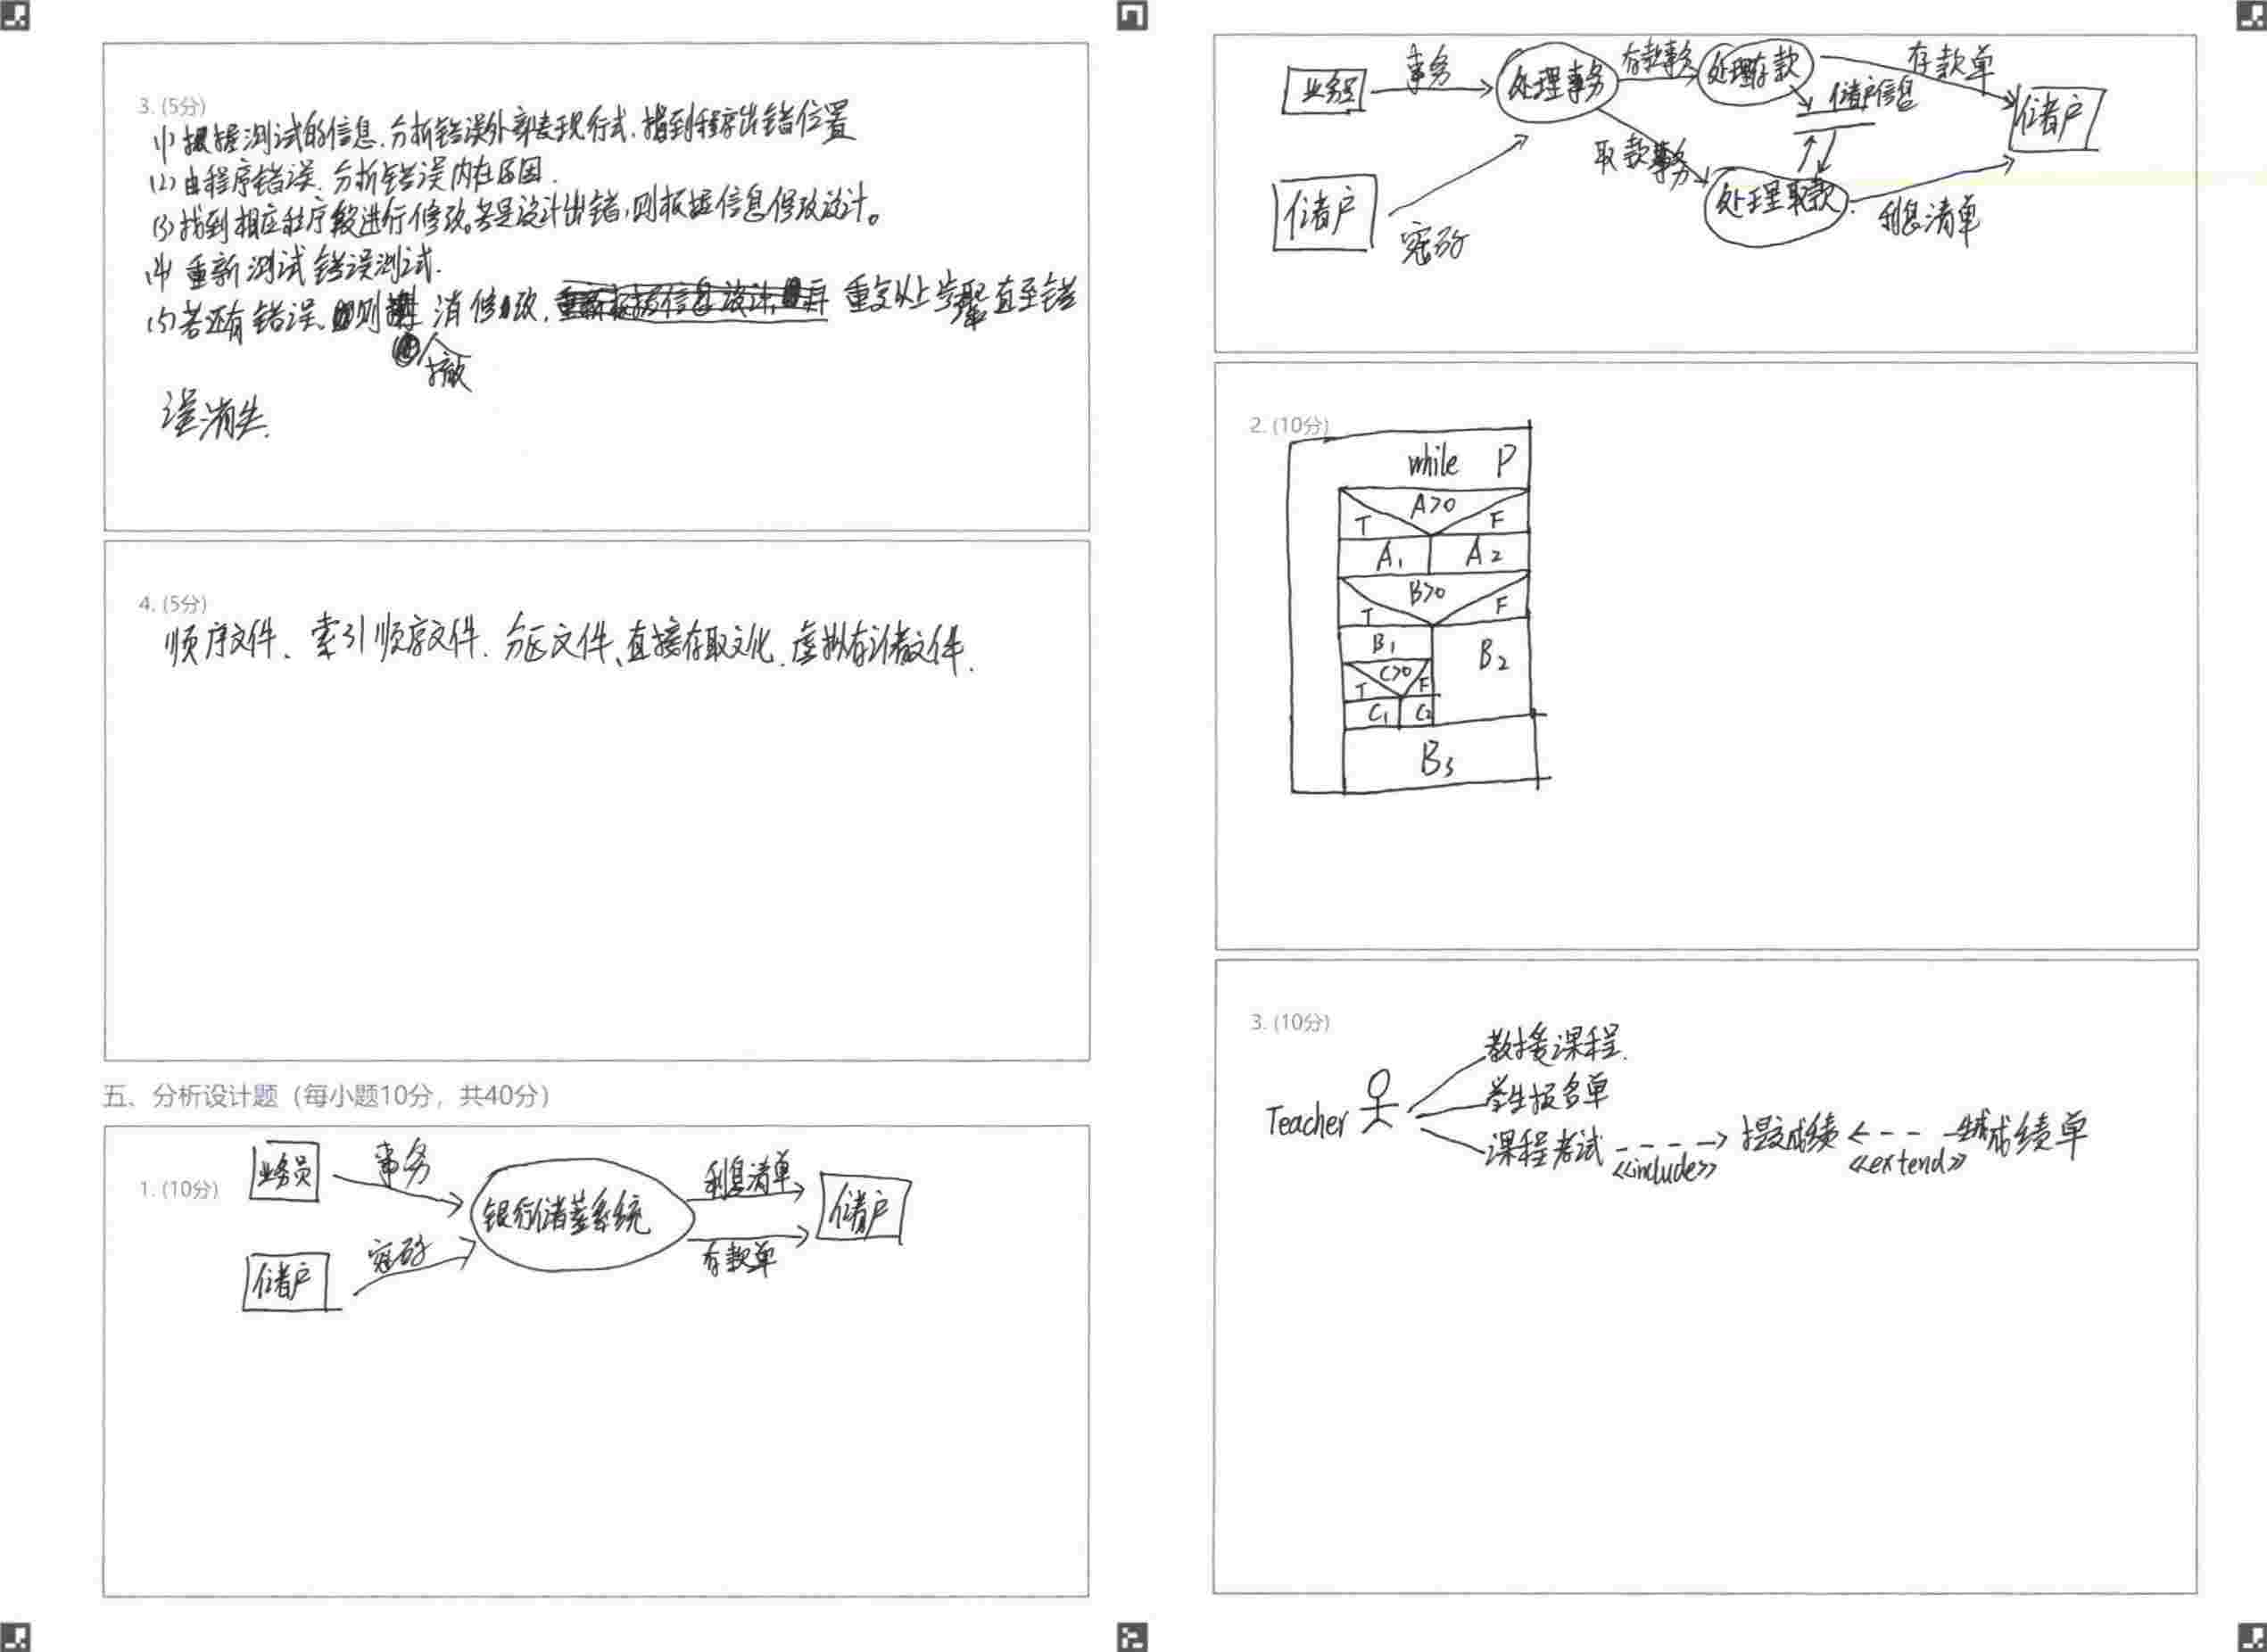 3. (5分)
(1) 根据测试的信息、分析错误外部表现形式,找到程序出错位置
(2) 由程序错误、分析错误内在原因.
(3) 找到相应程序段进行修改。若是设计出错,则根据信息修改设计。
(4) 重新测试错误测试.
(5) 若还有错误、则撤消修改, 重复以上步骤直至错
误消失.
4. (5分)
顺序文件、索引顺序文件、分区文件、直接存取文化、虚拟存储文件.
五、分析设计题(每小题10分,共40分)
1. (10分)
业务员
事务
储户
密码
银行储蓄系统
利息清单
存款单
储户
业务员
事务
处理事务
存款事务
处理存款
存款单
储户信息
储户
取款事务
处理取款
利息清单
储户
密码
2. (10分)
while P
A>0
T F
A₁ A₂
B>0
T F
B₁ B₂
C>0
T F
C₁ C₂
B₃
3. (10分)
Teacher
教授课程.
学生报名单
课程考试 <<include>> 提交成绩 <<extend>> 生成成绩单